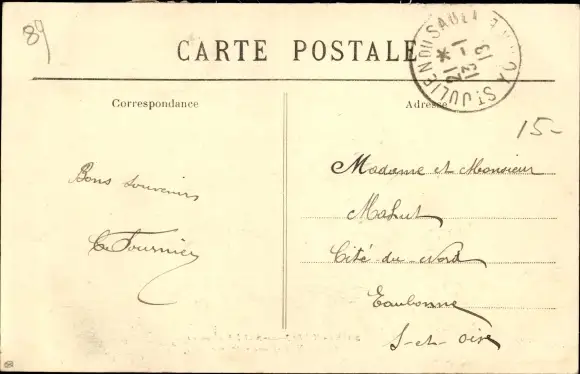 89
CARTE POSTALE
ST JULIEN DU SAULT
21 *
13 - 1
13
Correspondance
Adresse
15-
Bons souvenirs
Fournier
Madame et Monsieur
Mahut
Cité du Nord
Eaubonne
S-et-Oise